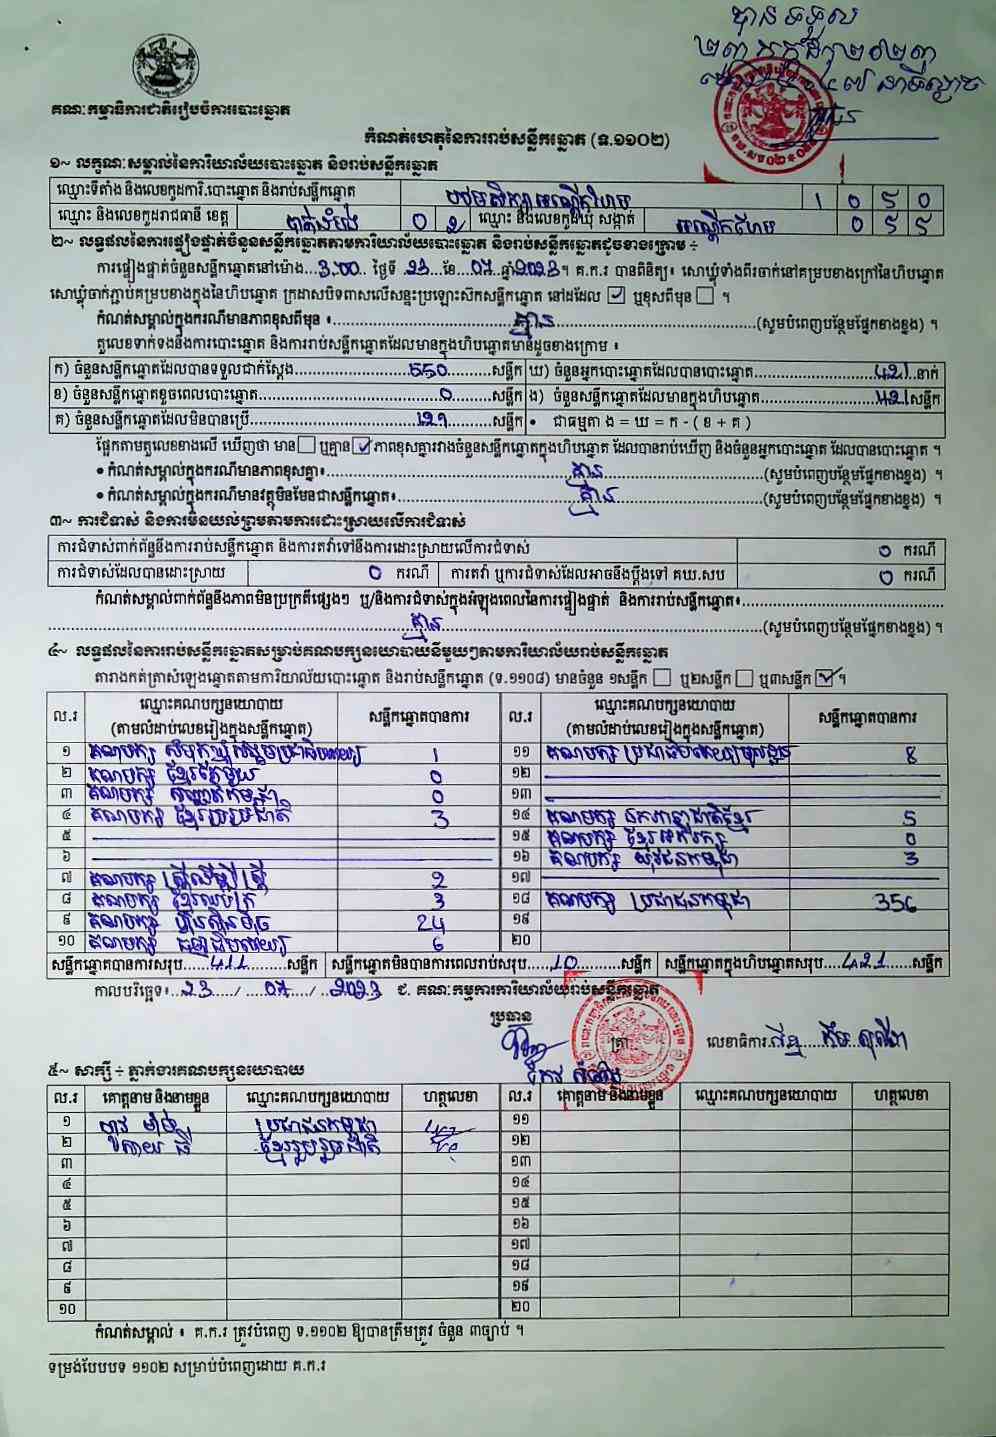 បានទទួល
២៣ កក្កដា ២០២៣
៤៧ នាទីល្ងាច
គណៈកម្មាធិការជាតិរៀបចំការបោះឆ្នោត
កំណត់ហេតុនៃការរាប់សន្លឹកឆ្នោត (ទ.១១០២)
១~ លក្ខណៈសម្គាល់នៃការិយាល័យបោះឆ្នោត និងរាប់សន្លឹកឆ្នោត
ឈ្មោះទីតាំង និងលេខកូដការិ.បោះឆ្នោត និងរាប់សន្លឹកឆ្នោត បឋមសិក្សាអណ្តើកហែប 1 0 5 0
ឈ្មោះ និងលេខកូដរាជធានី ខេត្ត បាត់ដំបង 0 2 ឈ្មោះ និងលេខកូដឃុំ សង្កាត់ អណ្តើកហែប 0 5 5
២~ លទ្ធផលនៃការផ្ទៀងផ្ទាត់ចំនួនសន្លឹកឆ្នោតតាមការិយាល័យបោះឆ្នោត និងរាប់សន្លឹកឆ្នោតដូចខាងក្រោម ÷
ការផ្ទៀងផ្ទាត់ចំនួនសន្លឹកឆ្នោតនៅម៉ោង...3:00... ថ្ងៃទី 23 ខែ 07 ឆ្នាំ 2023។ គ.ក.រ បានពិនិត្យ៖ សោឃ្លុំទាំងពីរចាក់នៅគម្របខាងក្រៅនៃហិបឆ្នោត
សោឃ្លុំចាក់ភ្ជាប់គម្របខាងក្នុងនៃហិបឆ្នោត ក្រដាសបិទពាសលើសន្ទះប្រឡោះស៊កសន្លឹកឆ្នោត នៅដដែល ☑ ឬខុសពីមុន ☐ ។
កំណត់សម្គាល់ក្នុងករណីមានភាពខុសពីមុន ៖ គ្មាន (សូមបំពេញបន្ថែមផ្នែកខាងខ្នង) ។
តួលេខទាក់ទងនឹងការបោះឆ្នោត និងការរាប់សន្លឹកឆ្នោតដែលមានក្នុងហិបឆ្នោតមានដូចខាងក្រោម ៖
ក) ចំនួនសន្លឹកឆ្នោតដែលបានទទួលជាក់ស្តែង 550 សន្លឹក ឃ) ចំនួនអ្នកបោះឆ្នោតដែលបានបោះឆ្នោត 421 នាក់
ខ) ចំនួនសន្លឹកឆ្នោតខូចពេលបោះឆ្នោត 0 សន្លឹក ង) ចំនួនសន្លឹកឆ្នោតដែលមានក្នុងហិបឆ្នោត 421 សន្លឹក
គ) ចំនួនសន្លឹកឆ្នោតដែលមិនបានប្រើ 129 សន្លឹក • ជាធម្មតា ង = ឃ = ក - ( ខ + គ )
ផ្អែកតាមតួលេខខាងលើ ឃើញថា មាន ☐ ឬគ្មាន ☑ ភាពខុសគ្នារវាងចំនួនសន្លឹកឆ្នោតក្នុងហិបឆ្នោត ដែលបានរាប់ឃើញ និងចំនួនអ្នកបោះឆ្នោត ដែលបានបោះឆ្នោត ។
• កំណត់សម្គាល់ក្នុងករណីមានភាពខុសគ្នា៖ គ្មាន (សូមបំពេញបន្ថែមផ្នែកខាងខ្នង) ។
• កំណត់សម្គាល់ក្នុងករណីមានវត្ថុមិនមែនជាសន្លឹកឆ្នោត៖ គ្មាន (សូមបំពេញបន្ថែមផ្នែកខាងខ្នង) ។
៣~ ការជំទាស់ និងការមិនយល់ព្រមតាមការដោះស្រាយលើការជំទាស់
ការជំទាស់ពាក់ព័ន្ធនឹងការរាប់សន្លឹកឆ្នោត និងការតវ៉ាទៅនឹងការដោះស្រាយលើការជំទាស់ 0 ករណី
ការជំទាស់ដែលបានដោះស្រាយ 0 ករណី ការតវ៉ា ឬការជំទាស់ដែលអាចនឹងប្តឹងទៅ គឃ.សប 0 ករណី
កំណត់សម្គាល់ពាក់ព័ន្ធនឹងភាពមិនប្រក្រតីផ្សេងៗ ឬ/និងការជំទាស់ក្នុងអំឡុងពេលនៃការផ្ទៀងផ្ទាត់ និងការរាប់សន្លឹកឆ្នោត៖
គ្មាន (សូមបំពេញបន្ថែមផ្នែកខាងខ្នង) ។
៤~ លទ្ធផលនៃការរាប់សន្លឹកឆ្នោតសម្រាប់គណបក្សនយោបាយនីមួយៗតាមការិយាល័យរាប់សន្លឹកឆ្នោត
តារាងកត់ត្រាសំឡេងឆ្នោតតាមការិយាល័យបោះឆ្នោត និងរាប់សន្លឹកឆ្នោត (ទ.១១០៨) មានចំនួន ១សន្លឹក ☐ ឬ២សន្លឹក ☐ ឬ៣សន្លឹក ☑ ។
ល.រ ឈ្មោះគណបក្សនយោបាយ (តាមលំដាប់លេខរៀងក្នុងសន្លឹកឆ្នោត) សន្លឹកឆ្នោតបានការ ល.រ ឈ្មោះគណបក្សនយោបាយ (តាមលំដាប់លេខរៀងក្នុងសន្លឹកឆ្នោត) សន្លឹកឆ្នោតបានការ
១ គណបក្ស សំបុកឃ្មុំសង្គមប្រជាធិបតេយ្យ 1 ១១ គណបក្ស ប្រជាធិបតេយ្យមូលដ្ឋាន 8
២ គណបក្ស ខ្មែរតែមួយ 0 ១២
៣ គណបក្ស សញ្ជាតិកម្ពុជា 0 ១៣
៤ គណបក្ស ខ្មែររួបរួមជាតិ 3 ១៤ គណបក្ស ឯកភាពជាតិខ្មែរ 5
៥ ១៥ គណបក្ស ខ្មែរអភិរក្ស 0
៦ ១៦ គណបក្ស យុវជនកម្ពុជា 3
៧ គណបក្ស ស្ត្រីដើម្បីស្ត្រី 2 ១៧
៨ គណបក្ស ខ្មែរឈប់ក្រ 3 ១៨ គណបក្ស ប្រជាជនកម្ពុជា 356
៩ គណបក្ស ហ្វ៊ុនស៊ិនប៉ិច 24 ១៩
១០ គណបក្ស ធម្មាធិបតេយ្យ 6 ២០
សន្លឹកឆ្នោតបានការសរុប 411 សន្លឹក សន្លឹកឆ្នោតមិនបានការពេលរាប់សរុប 10 សន្លឹក សន្លឹកឆ្នោតក្នុងហិបឆ្នោតសរុប 421 សន្លឹក
កាលបរិច្ឆេទ៖ 23 / 07 / 2023 ជ. គណៈកម្មការការិយាល័យរាប់សន្លឹកឆ្នោត
ប្រធាន
ត្រា លេខាធិការ
៥~ សាក្សី ÷ ភ្នាក់ងារគណបក្សនយោបាយ
ល.រ គោត្តនាម និងនាមខ្លួន ឈ្មោះគណបក្សនយោបាយ ហត្ថលេខា ល.រ គោត្តនាម និងនាមខ្លួន ឈ្មោះគណបក្សនយោបាយ ហត្ថលេខា
១ ប្រជាជនកម្ពុជា ១១
២ ខ្មែររួបរួមជាតិ ១២
៣ ១៣
៤ ១៤
៥ ១៥
៦ ១៦
៧ ១៧
៨ ១៨
៩ ១៩
១០ ២០
កំណត់សម្គាល់ ៖ គ.ក.រ ត្រូវបំពេញ ទ.១១០២ ឱ្យបានត្រឹមត្រូវ ចំនួន ៣ច្បាប់ ។
ទម្រង់បែបបទ ១១០២ សម្រាប់បំពេញដោយ គ.ក.រ